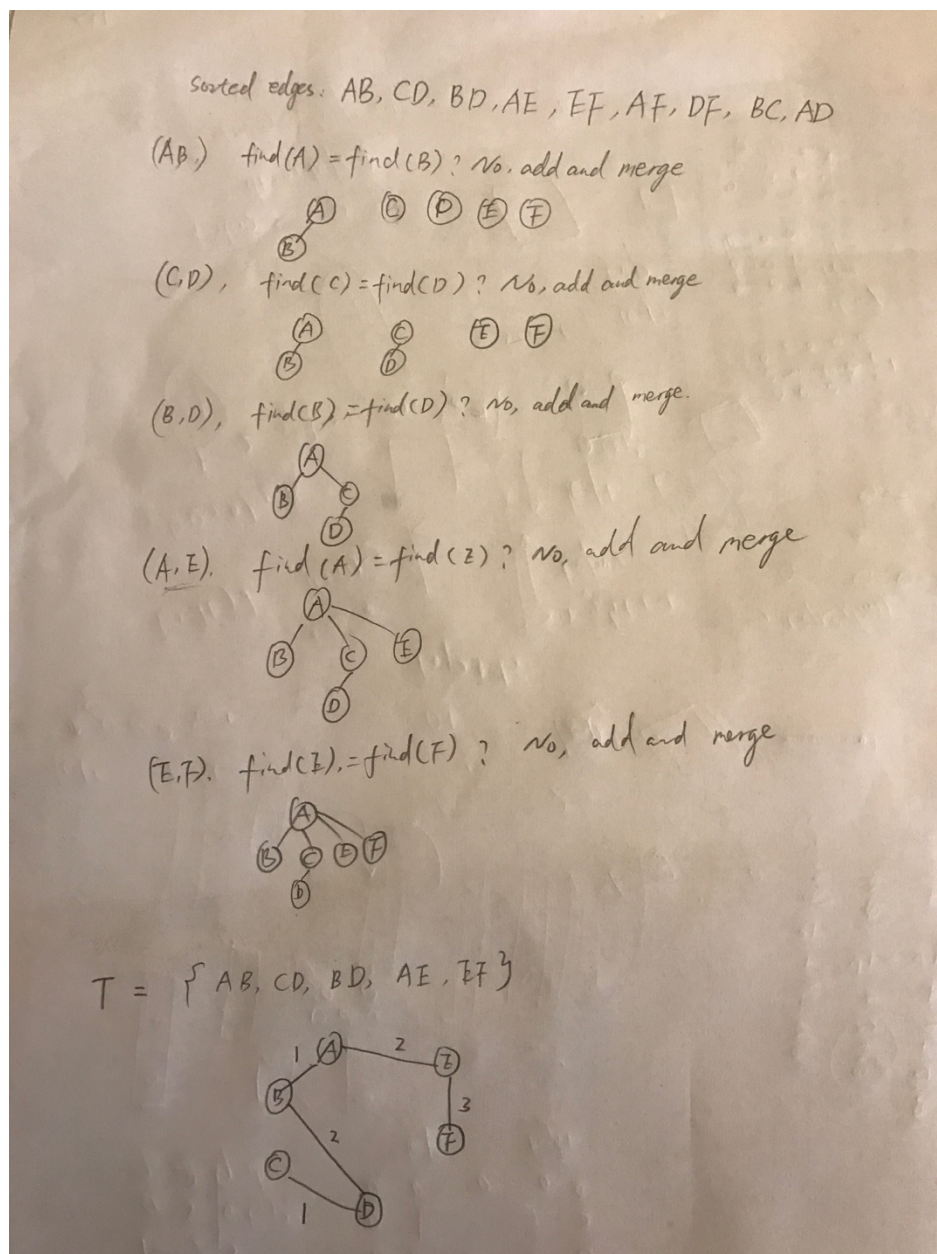 Sorted edges: AB, CD, BD, AE, EF, AF, DF, BC, AD
(AB,) find(A) = find(B)? No, add and merge
A C D E F
B
(C,D), find(C) = find(D)? No, add and merge
A C E F
B D
(B,D), find(B) = find(D)? No, add and merge.
A
B C
D
(A,E). find(A) = find(E)? No, add and merge
A
B C E
D
(E,F). find(E), = find(F)? No, add and merge
A
B C E F
D
T = { AB, CD, BD, AE, EF }
1 A 2 E
B 3
2 F
C
1 D